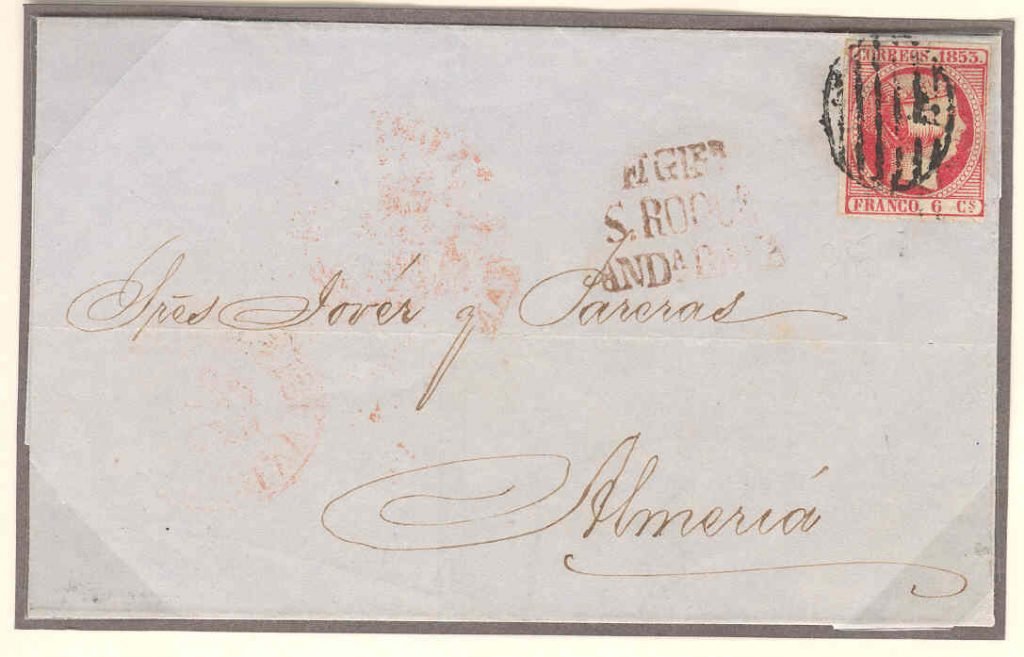 CORREOS. 1853.
FRANCO. 6 Cs
S. ROQUE
ANDA
Sres Jover y Pareras
Almeriá